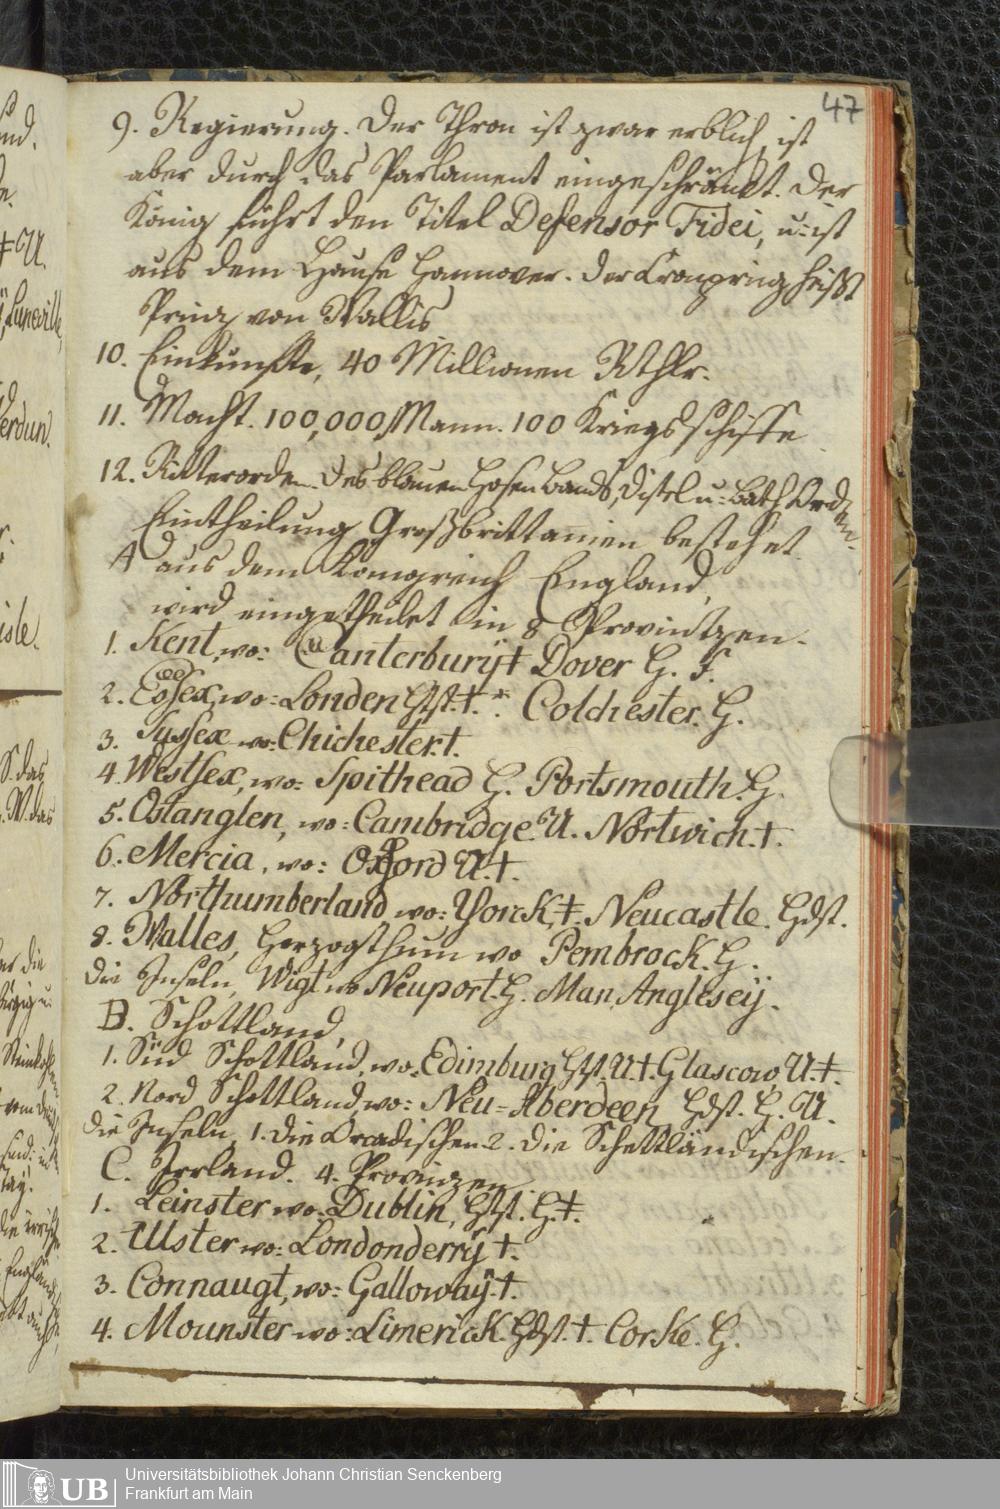 47
9. Regierung. Der Thron ist zwar erblich, ist
aber durch das Parlament eingeschränkt. Der
König führt den Titel Defensor Fidei, u: ist
aus dem Hause Hannover. Der Cronprinz heißt
Prinz von Wallis
10. Einkünfte, 40 Millionen Rthlr.
11. Macht. 100,000 Mann. 100 Kriegsschiffe
12. Ritterorden. Des blauen Hosenbands, Distel u: Bath Orden.
Eintheilung Großbrittannien bestehet
A aus dem Königreich England,
wird eingetheilet in 8 Provintzen.
1. Kent, wo: Canterburij‡ Dover H. F.
2. Essex, wo: Londen Hst.‡. Colchester. H.
3. Sussex wo: Chichester.†.
4. Westsex, wo: Spithead H. Portsmouth. H.
5. Ostanglen, wo: Cambridge. U. Nortwich.†.
6. Mercia, wo: Oxford U.†.
7. Northumberland wo: Yorck,‡. Neucastle. Hdst.
8. Walles, Herzogthum wo Pembrock. H.
Die Inseln, Wigt wo Neuport. H. Man, Anglesey.
B. Schottland,
1. Süd Schottland, wo: Edimburg Hst. U.†. Glascow, U.‡.
2. Nord Schottland, wo: Neu=Aberdeen Hdst. H. U.
Die Inseln, 1. Die Orcadischen 2. Die Schettländischen.
C. Irrland. 4. Provinzen
1. Leinster wo: Dublin, Hst. H. ‡.
2. Ulster wo: Londonderry †.
3. Connaugt, wo: Galloway.†.
4. Mounster wo: Limerick. Hdst. †. Corke. H.
Lunevill
Verdun.
UB
Universitätsbibliothek Johann Christian Senckenberg
Frankfurt am Main